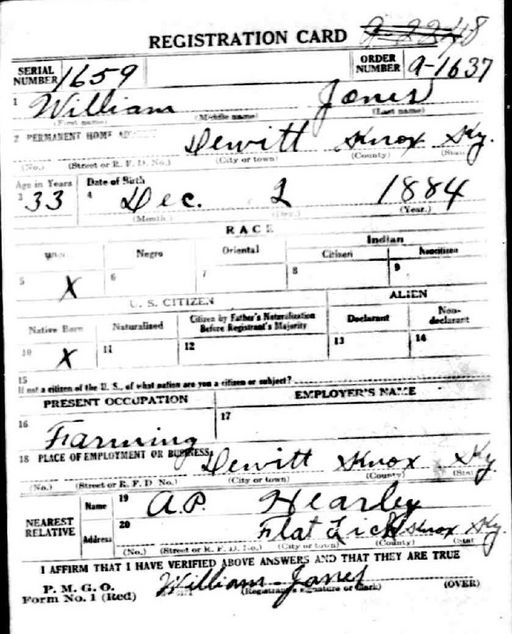 REGISTRATION CARD
SERIAL NUMBER 1659 ORDER NUMBER A-1637
1 William Jones
(First name) (Middle name) (Last name)
2 PERMANENT HOME ADDRESS Dewitt Knox Ky.
(No.) (Street or R. F. D. No.) (City or town) (County) (State)
Age in Years Date of Birth
3 33 4 Dec. 2 1884
(Month.) (Day.) (Year.)
RACE
White Negro Oriental Indian
Citizen Noncitizen
5 X 6 7 8 9
U. S. CITIZEN ALIEN
Native Born Naturalized Citizen by Father's Naturalization Before Registrant's Majority Declarant Non-declarant
10 X 11 12 13 14
15
If not a citizen of the U. S., of what nation are you a citizen or subject?
PRESENT OCCUPATION EMPLOYER'S NAME
16 Farming 17
18 PLACE OF EMPLOYMENT OR BUSINESS Dewitt Knox Ky
(No.) (Street or R. F. D. No.) (City or town) (County) (State
NEAREST RELATIVE
Name 19 A.P. Hearley
Address 20 Flat Lick Knox Ky.
(No.) (Street or R. F. D. No.) (City or town) (County) (State
I AFFIRM THAT I HAVE VERIFIED ABOVE ANSWERS AND THAT THEY ARE TRUE
P. M. G. O.
Form No. 1 (Red) William Jones (OVER)
(Registrant's signature or mark)